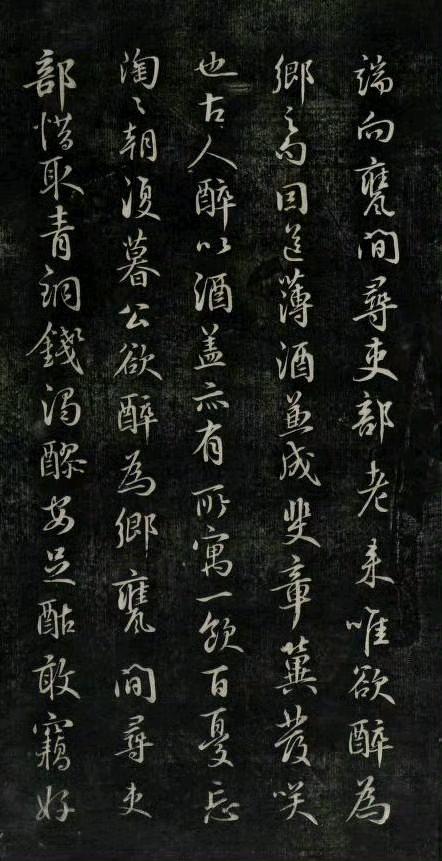 端向甕間尋吏部老来唯欲醉為
鄉之句因送薄酒兼成斐章冀發咲
也古人醉以酒盖亦有所寓一飲百憂忘
淘〻朝復暮公欲醉為鄉甕間尋吏
部惜取青銅錢濁醪安足酤敢竊好